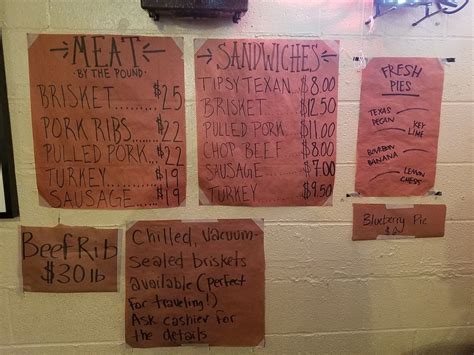 MEAT
BY THE POUND
BRISKET........$25
PORK RIBS...$22
PULLED PORK...$22
TURKEY.......$19
SAUSAGE......$19
SANDWICHES
TIPSY TEXAN. $8.00
BRISKET........$12.50
PULLED PORK.$11.00
CHOP BEEF...$8.00
SAUSAGE.....$7.00
TURKEY......$9.50
FRESH
PIES
TEXAS
PECAN
KEY
LIME
BOURBON
BANANA
LEMON
CHESS
Blueberry Pie
Beef Rib
$30 lb
Chilled, Vacuum-
Sealed briskets
available (perfect
for traveling!)
Ask cashier for
the details